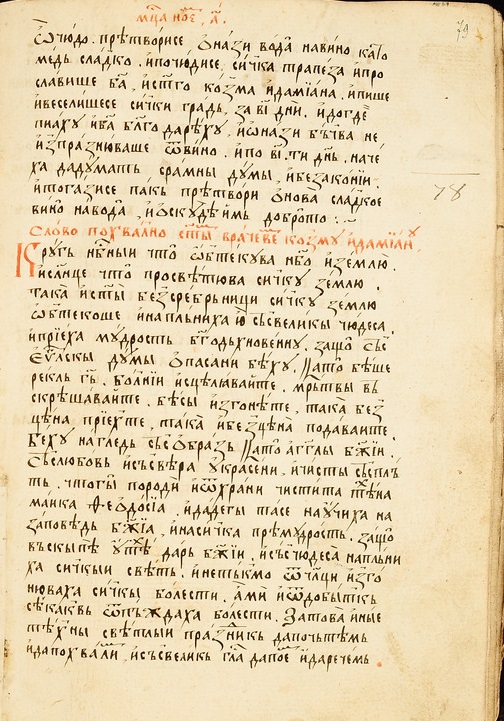 мц҃а ноѥ҇, а҃.
79
ѿ чюдо. прѣтворисе ѡнази вода навино като
медь сладко. ипочюдисе, сичка трапеза ипро
славише ба҃, ист҃го козма идамиꙗна. ипише
ивеселишесе сички градь, за в҃і днїи. идогде
пиаху ива бл҃го дарѣху, иѡнази бъчва не
изпразнюваше ѿ вино. ипо в҃і. ти днь, наче
ха дадумать срамны думы, ибезаконїи.
итогазисе пакь прѣтвори ѡнова сладкое
вино навода, иѡскудѣ имь доброто :~
78
Слово похвално ст҃ымь врачеве козму идамїану,
Кругь нб҃ныи что ѡбтекува нб҃о иземлю.
ислнце что просвѣтюва сичку землю.
така ист҃ы безсребрьници сичку землю
ѡбтекоше инаплъниха ю҆ съсвеликы чюдеса.
ипрїеха мудрость бг҃одъхновенну. защо със
еѵ҃лскы думы ѡпасани бѣху. като бѣше
рекль гь҃. болнїи исцелꙗваите. мрьтвы вь
скрѣшаваите. бѣсы изгонѣте, така без
цѣна прїехте, така ибезцѣна подаваите.
бѣху нагледь съсѡбразь като агг҃лы бж҃їи.
съслюбовь исъсвѣра украсени. ичисты съсплъ
ть. чтогы породи иѿхрани чистита тѣхна
маика ѳеодосїа. идадегы тасе научиха на
заповѣдь бж҃їа, инасичка прѣмудрость. защо
въскыпѣ у тѣхь дарь бж҃їи. исъсчюдеса наплъни
ха сичкыи свѣть. инетькмо ѿ чл҃ци изго
нюваха сичкы болести. ами иѿдобытькь
сѣкаквь ѿпъждаха болести. Затова иные
тѣхны свѣтлыи празникь дапочьтемь
идапохвалимь, исъсвеликь гл҃а дапоемь идаречемь.